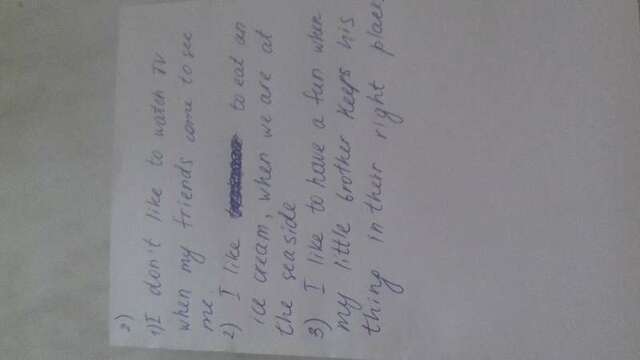 2)
1) I don't like to watch TV
when my friends come to see
me.
2) I like to eat an
ice cream, when we are at
the seaside
3) I like to have a fun when
my little brother keeps his
thing in their right place